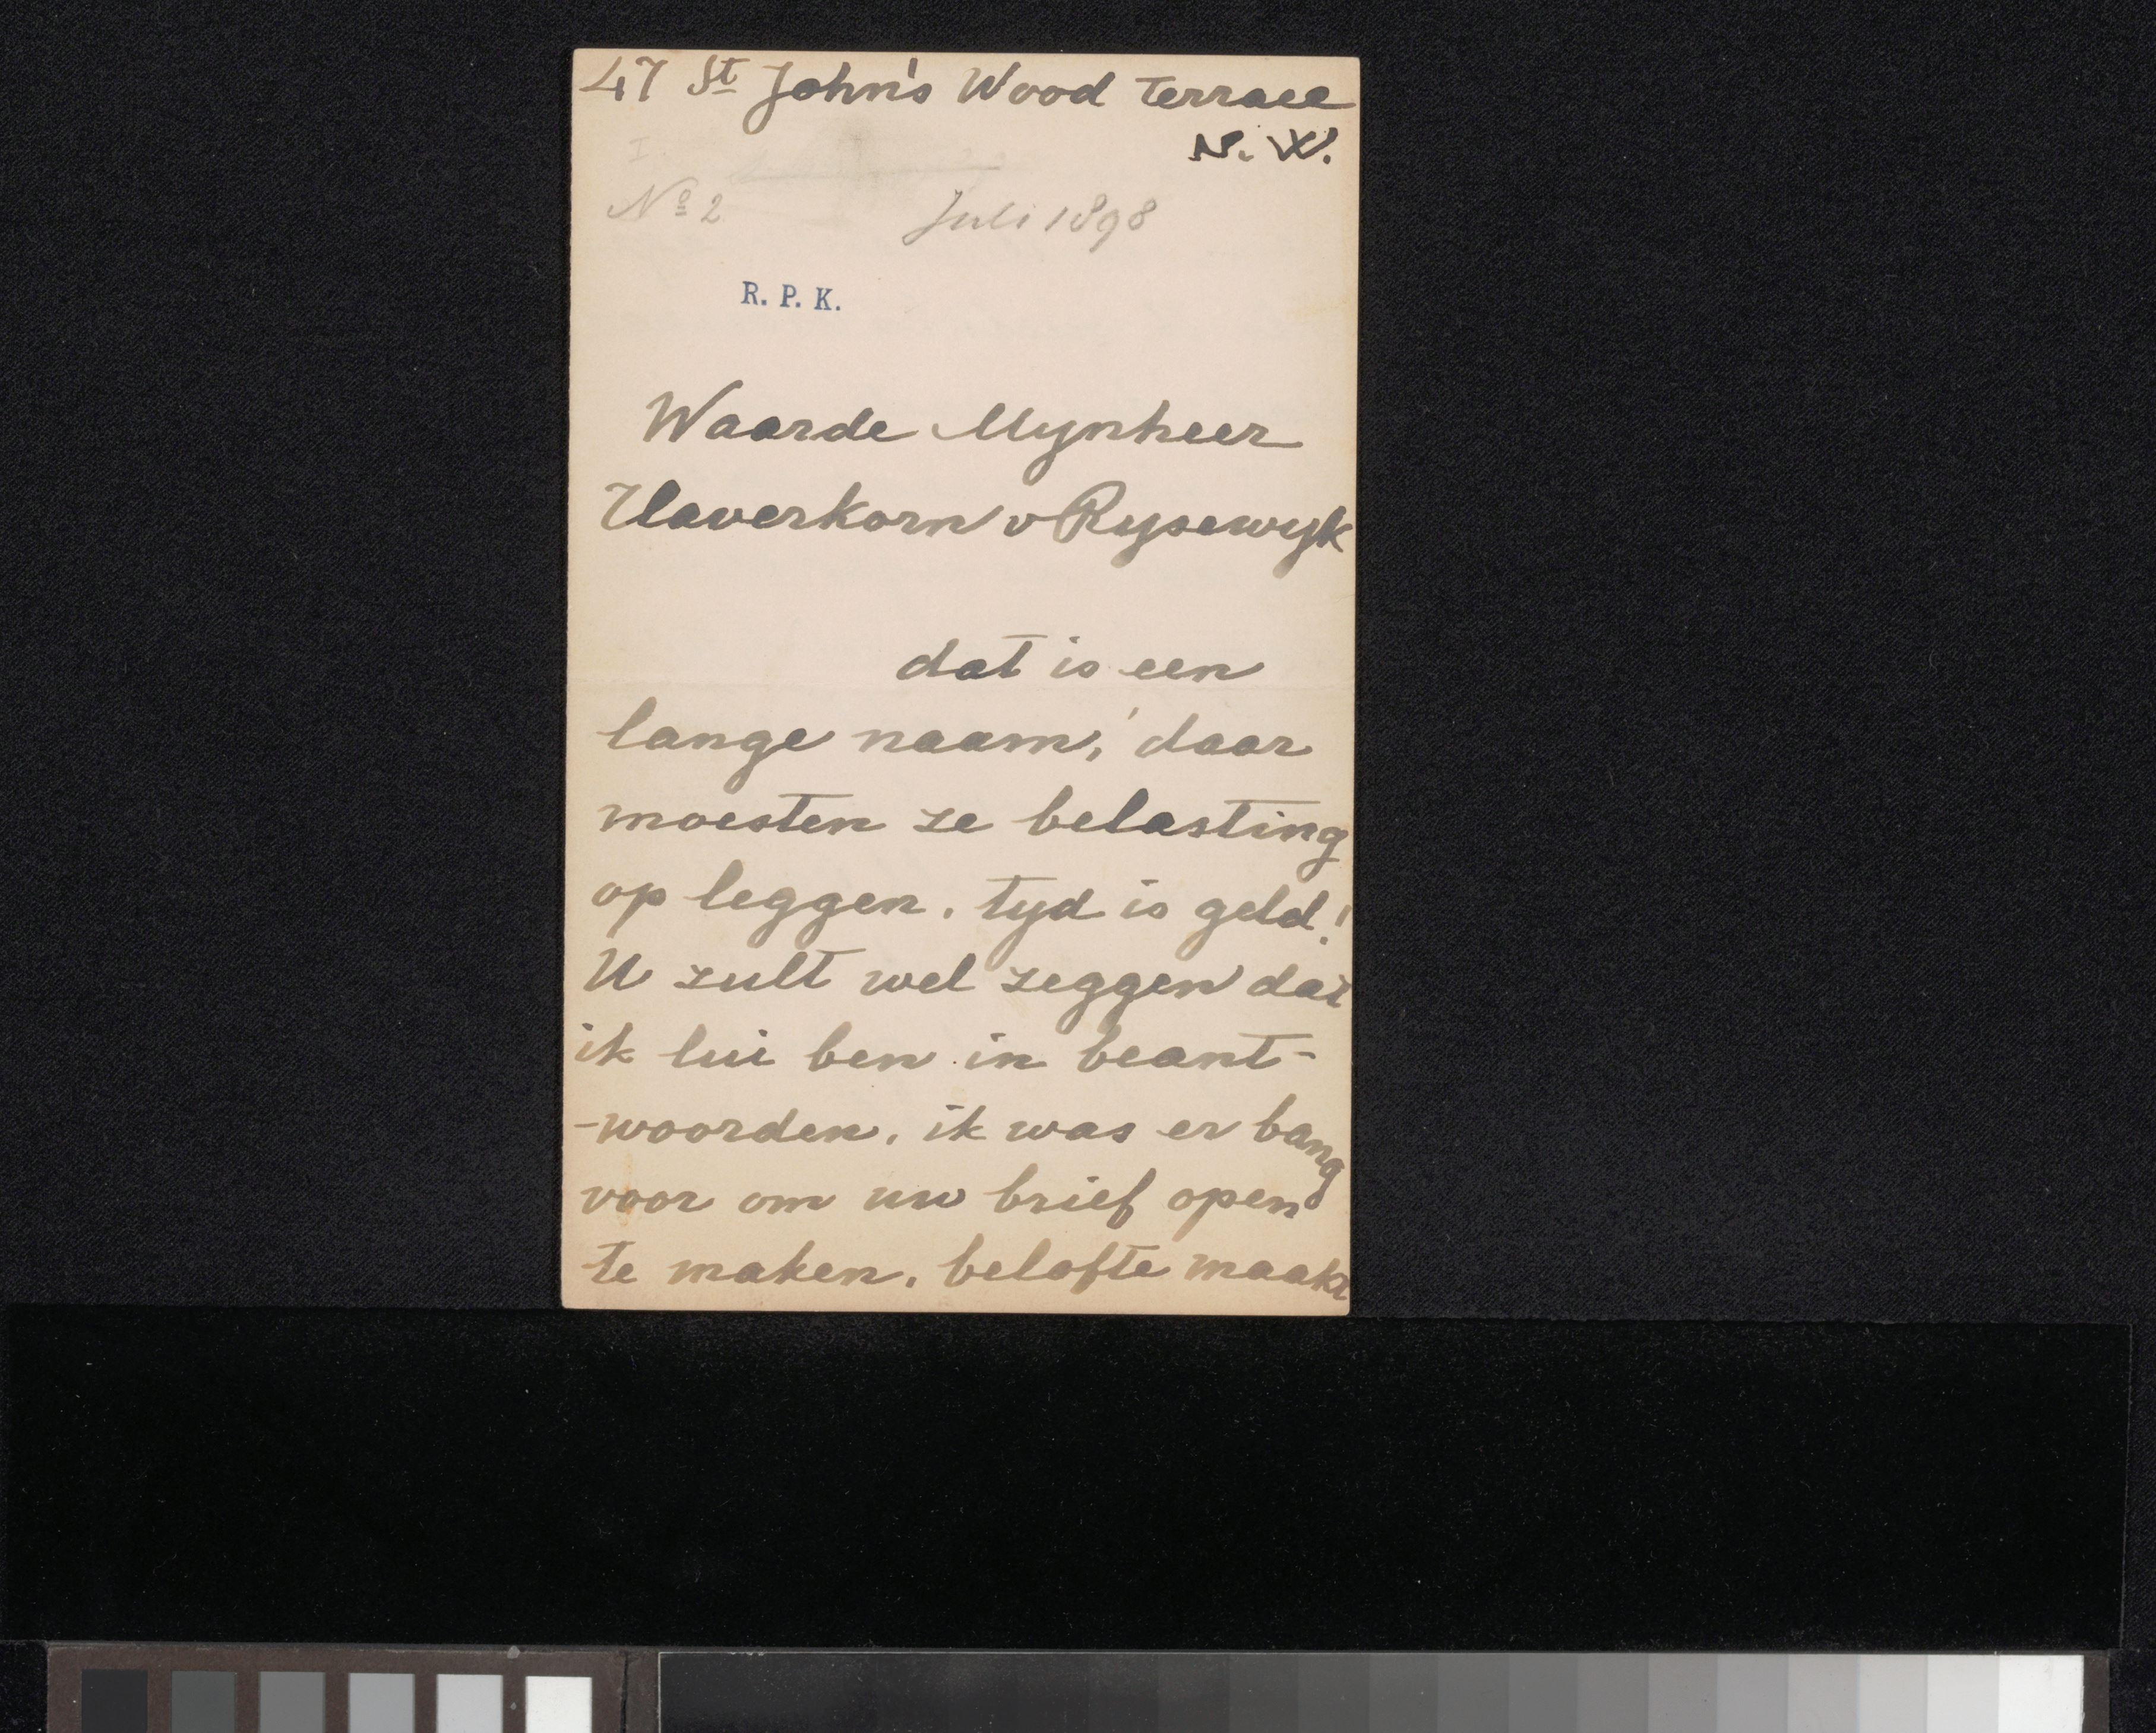 47 St John's Wood Terrace
N. W.
I
No 2 Juli 1898
R. P. K.
Waarde Mynheer
Haverkorn v Rysewyk
dat is een
lange naam, daar
moesten ze belasting
op leggen. tyd is geld!
U zult wel zeggen dat
ik lui ben in beant-
-woorden. ik was er bang
voor om uw brief open
te maken. belofte maakt